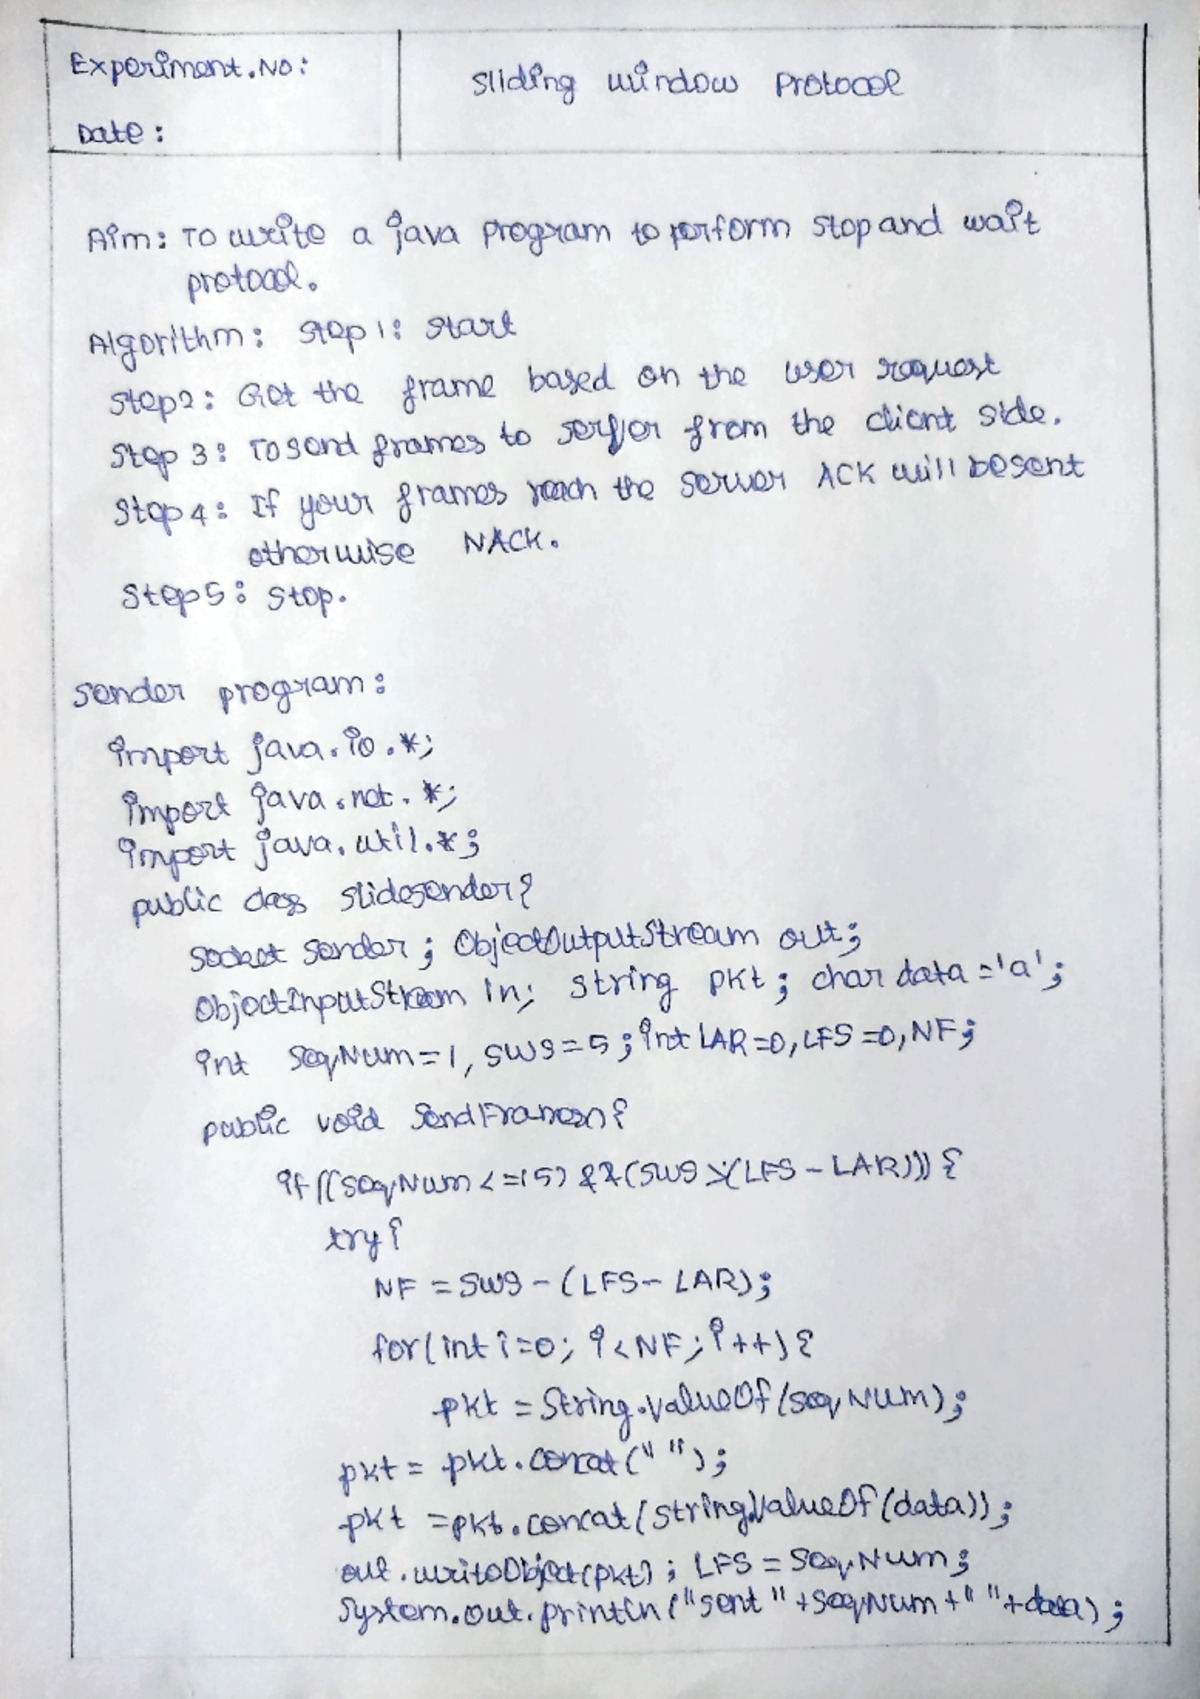 Experiment.No:
Sliding window Protocol
Date:
Aim: To write a java program to perform stop and wait
protocol.
Algorithm: Step 1: Start
Step2: Get the frame based on the user request
Step 3: To send frames to serfer from the client side.
Step 4: If your frames reach the server ACK will be sent
otherwise NACK.
Step5: Stop.
Sender program:
import java.io.*;
import java.net.*;
import java.util.*;
public class slidesender{
Socket sender; ObjectOutputStream out;
ObjectInputStream in; String pkt; char data='a';
int SeqNum=1, SWS=5; int LAR=0, LFS=0, NF;
public void SendFrames(){
if((SeqNum<=15)&&(SWS>(LFS-LAR))){
try{
NF=SWS-(LFS-LAR);
for(int i=0; i<NF; i++){
pkt=String.valueOf(SeqNum);
pkt= pkt.concat(" ");
pkt =pkt.concat(String.valueOf(data));
out.writeObject(pkt); LFS=SeqNum;
System.out.println("sent "+SeqNum+" "+data);